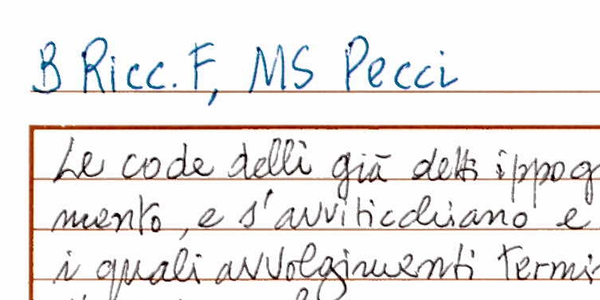 B Ricc. F, MS Pecci
Le code delli già detti ippog
mento, e s'avviticchiano e
i quali avvolgimenti termi